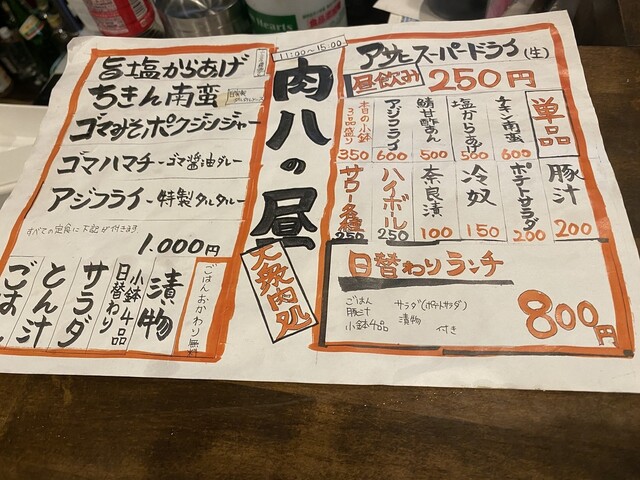 Hearts
旨塩からあげ
ちきん南蛮
ゴマみそポクジンジャー
ゴマハマチ~ゴマ醤油ダレ~
アジフライ~特製タルタル~
すべての定食に下記が付きます
1.000円
ごはん
とん汁
サラダ
日替わり
小鉢4品
漬物
ごはんおかわり無料
11:00~15:00
肉八の昼
大衆肉処
アサヒスーパードライ(生)
昼飲み 250円
単品
チキン南蛮 600
塩からあげ 500
鯖甘酢あん 500
アジフライ 600
本日の小鉢3品盛り 350
豚汁 200
ポテトサラダ 200
冷奴 150
奈良漬 100
ハイボール 250
サワー各種 250
日替わりランチ
ごはん
豚汁
小鉢4品
サラダ(ポテトサラダ)
漬物
付き
800円